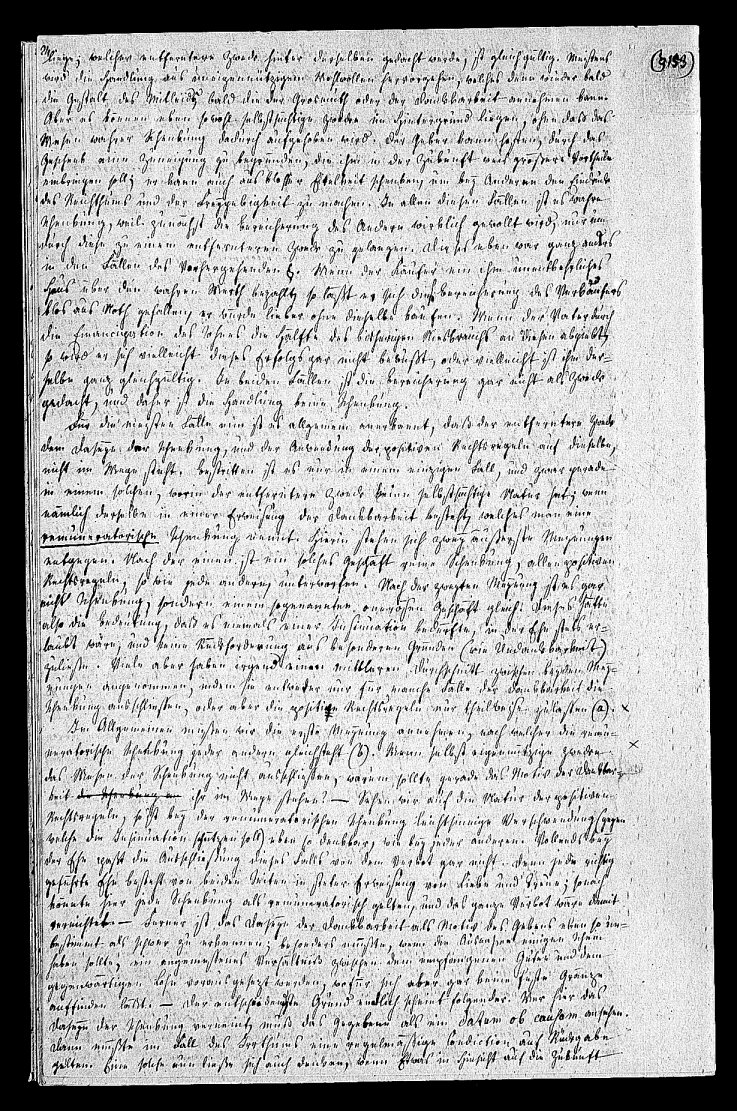 9153
liege; welcher entferntere Zweck hinter derselben gedacht werde, ist gleichgültig. Meistens
wird die Handlung aus uneigennützigem Wohlwollen hervorgehen, welches dann wieder bald
die Gestalt des Mitleids bald die der Grosmuth oder der Dankbarkeit annehmen kann.
Aber es können eben sowohl selbstsüchtige Zwecke im Hintergrund liegen, ohne daß das
Wesen wahrer Schenkung dadurch aufgehoben wird. Der Geber kann hoffen, durch das
Geschenk eine Zuneigung zu begründen, die ihm in der Zukunft weit größere Vortheile
einbringen soll; er kann auch aus bloßer Eitelkeit schenken, um bey Anderen den Eindruck
des Reichthums und der Freygebigkeit zu machen. In allen diesen Fällen ist es wahre
Schenkung, weil zunächst die Bereicherung des Andern wirklich gewollt wird, nur um
durch diese zu einem entfernteren Zweck zu gelangen. Dieses eben war ganz anders
in den Fällen des Vorhergehenden §. Wenn der Käufer ein ihm unentbehrliches
Haus über den wahren Werth bezahlt, so läßt er sich die Bereicherung des Verkäufers
blos aus Noth gefallen, er würde lieber ohne dieselbe kaufen. Wenn der Vater durch
die Emancipation des Sohnes die Hälfte des bisherigen Niesbrauchs an diesen abgiebt,
so wird er sich vielleicht dieses Erfolgs gar nicht bewußt, oder vielleicht ist ihm der-
selbe ganz gleichgültig. In beiden Fällen ist die Bereicherung gar nicht als Zweck
gedacht, und daher ist die Handlung keine Schenkung.
Für die meisten Fälle nun ist es allgemein anerkannt, daß der entferntere Zweck
dem Daseyn der Schenkung, und der Anwendung der positiven Rechtsregeln auf dieselbe,
nicht im Wege steht. bestritten ist es nur in einem einzigen Fall, und zwar gerade
in einem solchen, worin der entferntere Zweck keine selbstsüchtige Natur hat; wenn
nämlich derselbe in einer Erweisung der Dankbarkeit besteht, welches man eine
remuneratorische Schenkung nennt. Hierin stehen sich zwey äußerste Meynungen
entgegen. Nach der einen ist ein solches Geschäft reine Schenkung, allen positiven
Rechtsregeln, so wie jede andere, unterworfen. Nach der zweyten Meynung ist es gar
nicht Schenkung, sondern einem sogenannten onerosen Geschäft gleich. Dieses hätte
also die Bedeutung, daß es niemals einer Insinuation bedürfte, in der Ehe stets er-
laubt wäre, und keine Rückforderung aus besonderen Gründen (wie Undankbarkeit)
zuließe. Viele aber haben irgend einen mittleren Durchschnitt zwischen beyden Mey-
nungen angenommen, indem sie entweder nur für manche Fälle der Dankbarkeit die
Schenkung ausschließen, oder aber die positiven Rechtsregeln nur theilweise zulassen (a). ×
Im Allgemeinen müssen wir die erste Meynung annehmen, nach welcher die remu-
neratorische Schenkung jeder andern gleichsteht (b). Wenn selbst eigennützige Zwecke ×
das Wesen der Schenkung nicht ausschließen, warum sollte gerade das Motiv der Dankbar-
keit ihr im Wege stehen? — Sehen wir auf die Natur der positiven
Rechtsregeln, so ist bey der remuneratorischen Schenkung leichtsinnige Verschwendung (gegen
welche die Insinuation schützen soll) eben so denkbar, wie bey jeder anderen. Vollends bey
der Ehe paßt die Ausschließung dieses Falls von dem Verbot gar nicht. Denn jede richtig
geführte Ehe besteht von beiden Seiten in steter Erweisung von Liebe und Treue; sonach
könnte hier jede Schenkung als remuneratorisch gelten, und das ganze Verbot wäre damit
vernichtet. — Ferner ist das Daseyn der Dankbarkeit als Motiv des Gebens eben so un-
bestimmt als schwer zu erkennen; besonders müßte, wenn die Ausnahme einigen Schein
haben sollte, ein angemessenes Verhältniß zwischen dem empfangenen Guten und dem
gegenwärtigen Lohn vorausgesetzt werden, wofür sich aber gar keine feste Gränze
auffinden läßt. — Der entscheidendste Grund endlich scheint folgender. Wer hier das
Daseyn der Schenkung verneint, muß das Gegebene als ein datum ob causam ansehen.
Dann müßte im Fall des Irrthums eine regelmäßige Condiction auf Rückgabe
gelten. Eine solche nun ließe sich auch denken, wenn Etwas in Hinsicht auf die Zukunft